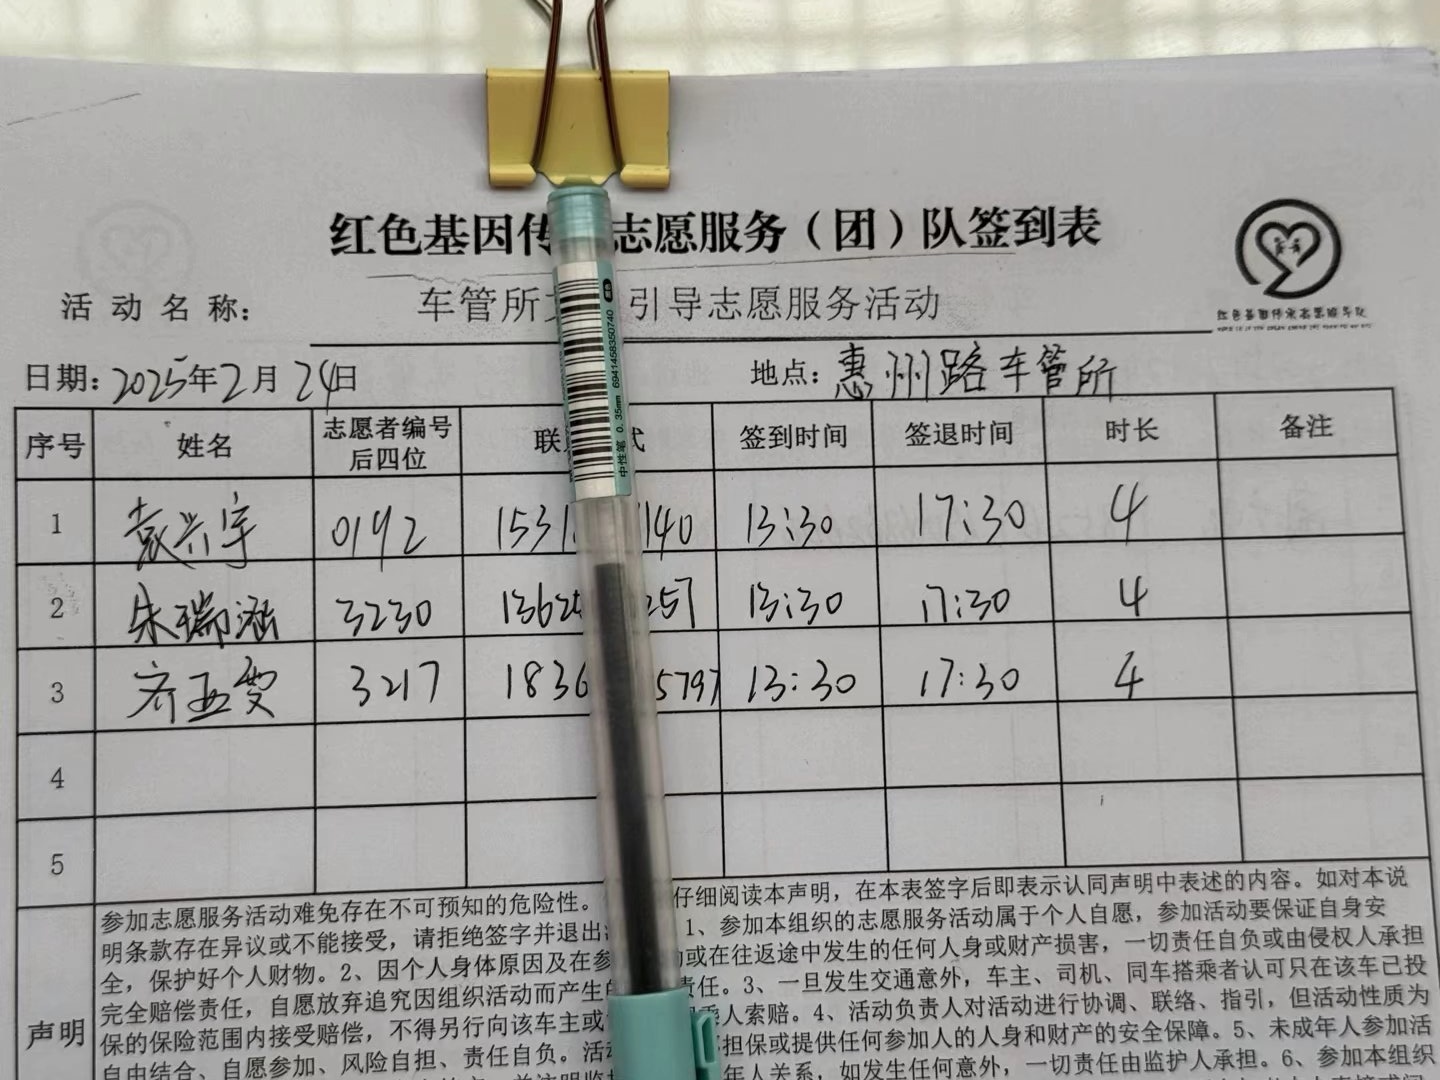 红色基因传 志愿服务（团）队签到表
活动名称： 车管所 引导志愿服务活动
日期：2025年2月24日 地点：惠州路车管所
序号 姓名 志愿者编号后四位 联 式 签到时间 签退时间 时长 备注
1 袁兴宇 0192 1531 140 13:30 17:30 4
2 朱瑞涵 3230 1362 257 13:30 17:30 4
3 齐亚雯 3217 1836 5797 13:30 17:30 4
4
5
声明
参加志愿服务活动难免存在不可预知的危险性。 仔细阅读本声明，在本表签字后即表示认同声明中表述的内容。如对本说
明条款存在异议或不能接受，请拒绝签字并退出 1、参加本组织的志愿服务活动属于个人自愿，参加活动要保证自身安
全，保护好个人财物。2、因个人身体原因及在参 或在往返途中发生的任何人身或财产损害，一切责任自负或由侵权人承担
完全赔偿责任，自愿放弃追究因组织活动而产生的 责任。3、一旦发生交通意外，车主、司机、同车搭乘者认可只在该车已投
保的保险范围内接受赔偿，不得另行向该车主或 乘人索赔。4、活动负责人对活动进行协调、联络、指引，但活动性质为
自由结合、自愿参加、风险自担、责任自负。活动 担保或提供任何参加人的人身和财产的安全保障。5、未成年人参加活
年人关系，如发生任何意外，一切责任由监护人承担。6、参加本组织
中性笔 0.35mm 6941458350740